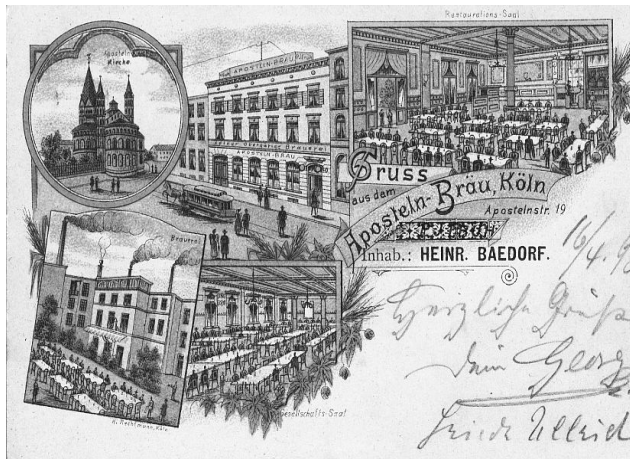 Restaurations-Saal
Aposteln
Kirche
APOSTELN-BRÄU
APOSTELN-BRÄU
Gruss
aus dem
Aposteln-Bräu, Köln
Apostelnstr. 19
Inhab.: HEINR. BAEDORF.
Brauerei
Gesellschafts-Saal
16/4.
Herzliche Grüße
Dein Georg